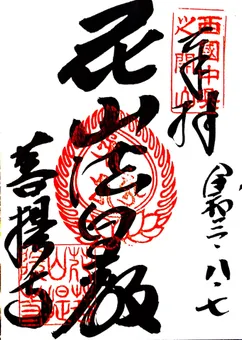 奉拝
西國中興
之開山
八・七
花山法皇殿
菩提寺